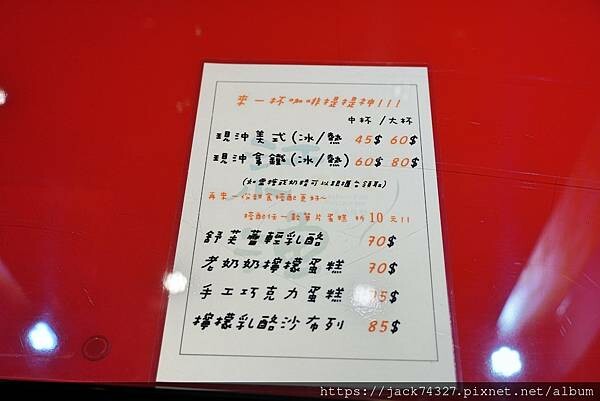 來一杯咖啡提提神!!!
中杯 /大杯
現沖美式(冰/熱 45$ 60$
現沖拿鐵(冰/熱) 60$ 80$
(如需糖或奶精可以跟櫃台領取)
再來一份甜食搭配更好~
搭配任一款單片蛋糕 折 10 元!!
舒芙蕾輕乳酪 70$
老奶奶檸檬蛋糕 70$
手工巧克力蛋糕 5$
檸檬乳酪沙布列 85$
https://jack74327.pixnet.net/album